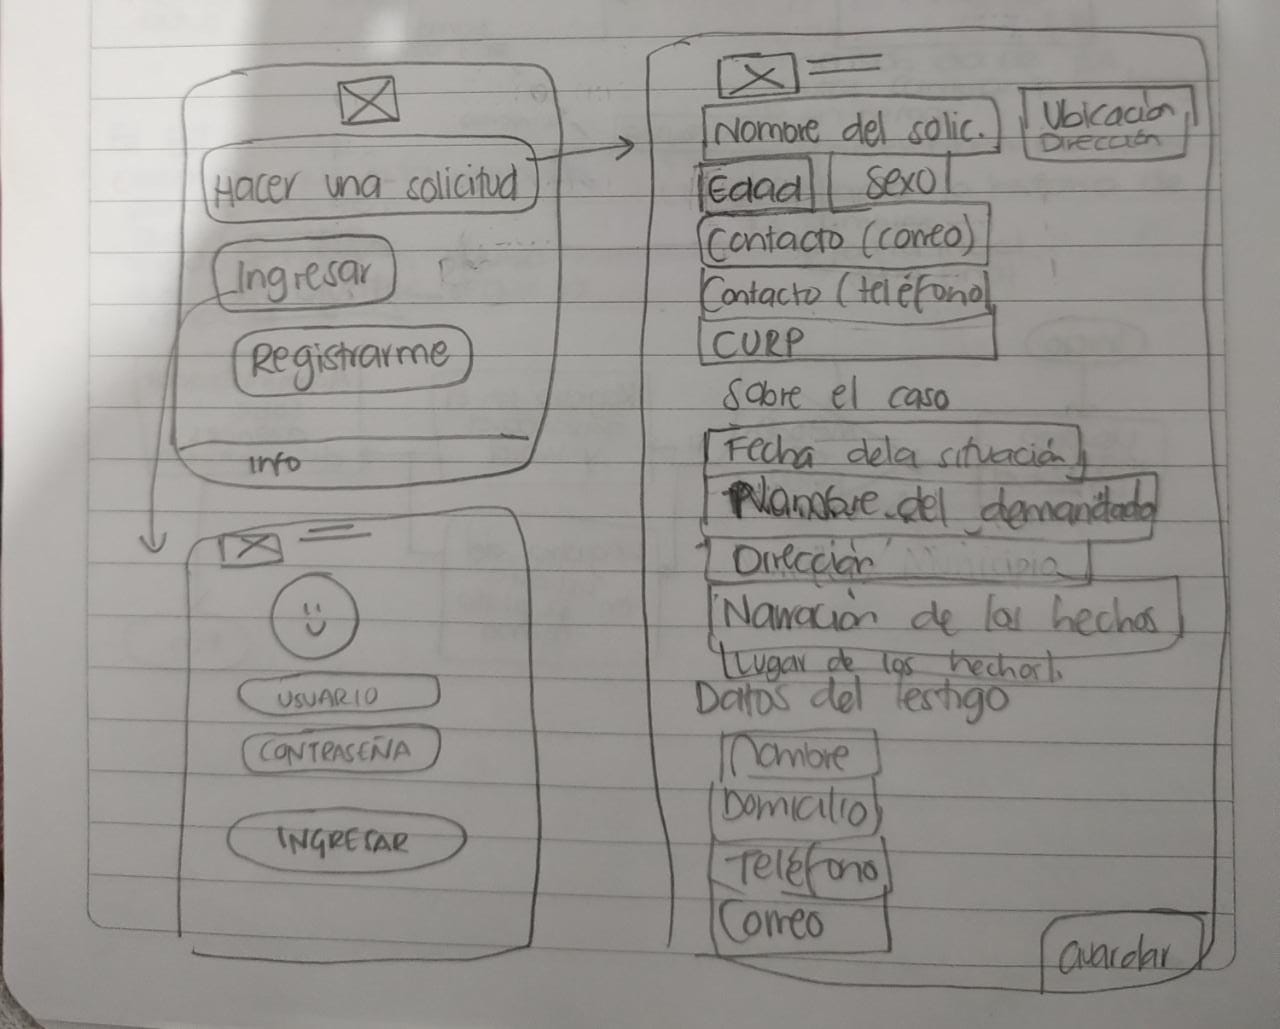 Hacer una solicitud
Ingresar
Registrarme
Info
USUARIO
CONTRASEÑA
INGRESAR
Nombre del solic.
Ubicación
Dirección
Edad
Sexo
Contacto (correo)
Contacto (teléfono)
CURP
Sobre el caso
Fecha dela situación
Nombre del demandado
Dirección Municipio
Narración de los hechos
Lugar de los hechos
Datos del testigo
Nombre
Domicilio
Teléfono
Correo
Guardar